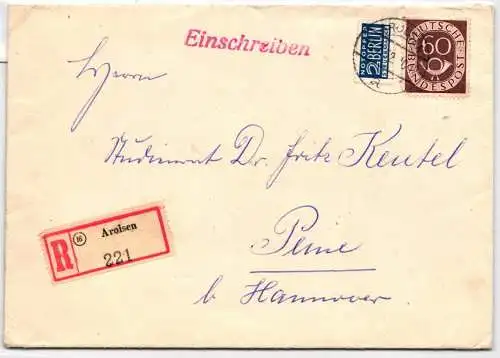 Einschreiben
NOTOPFER
2 BERLIN
STEUERMARKE
60
DEUTSCHE
BUNDESPOST
Herrn
Studienrat Dr. Fritz Keutel
R (16) Arolsen
221
Peine
b Hannover